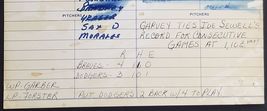 PITCHERS
SAX D
MORALES
GARVEY TIES JOE SEWELL'S
RECORD FOR CONSECUTIVE
GAMES AT 1,102
R H E
BRAVES - 4 11 0
DODGERS - 3 10 1
W.P. GARBER
L.P. FORSTER
PUT DODGERS 2 BACK W/ 4 TO PLAY